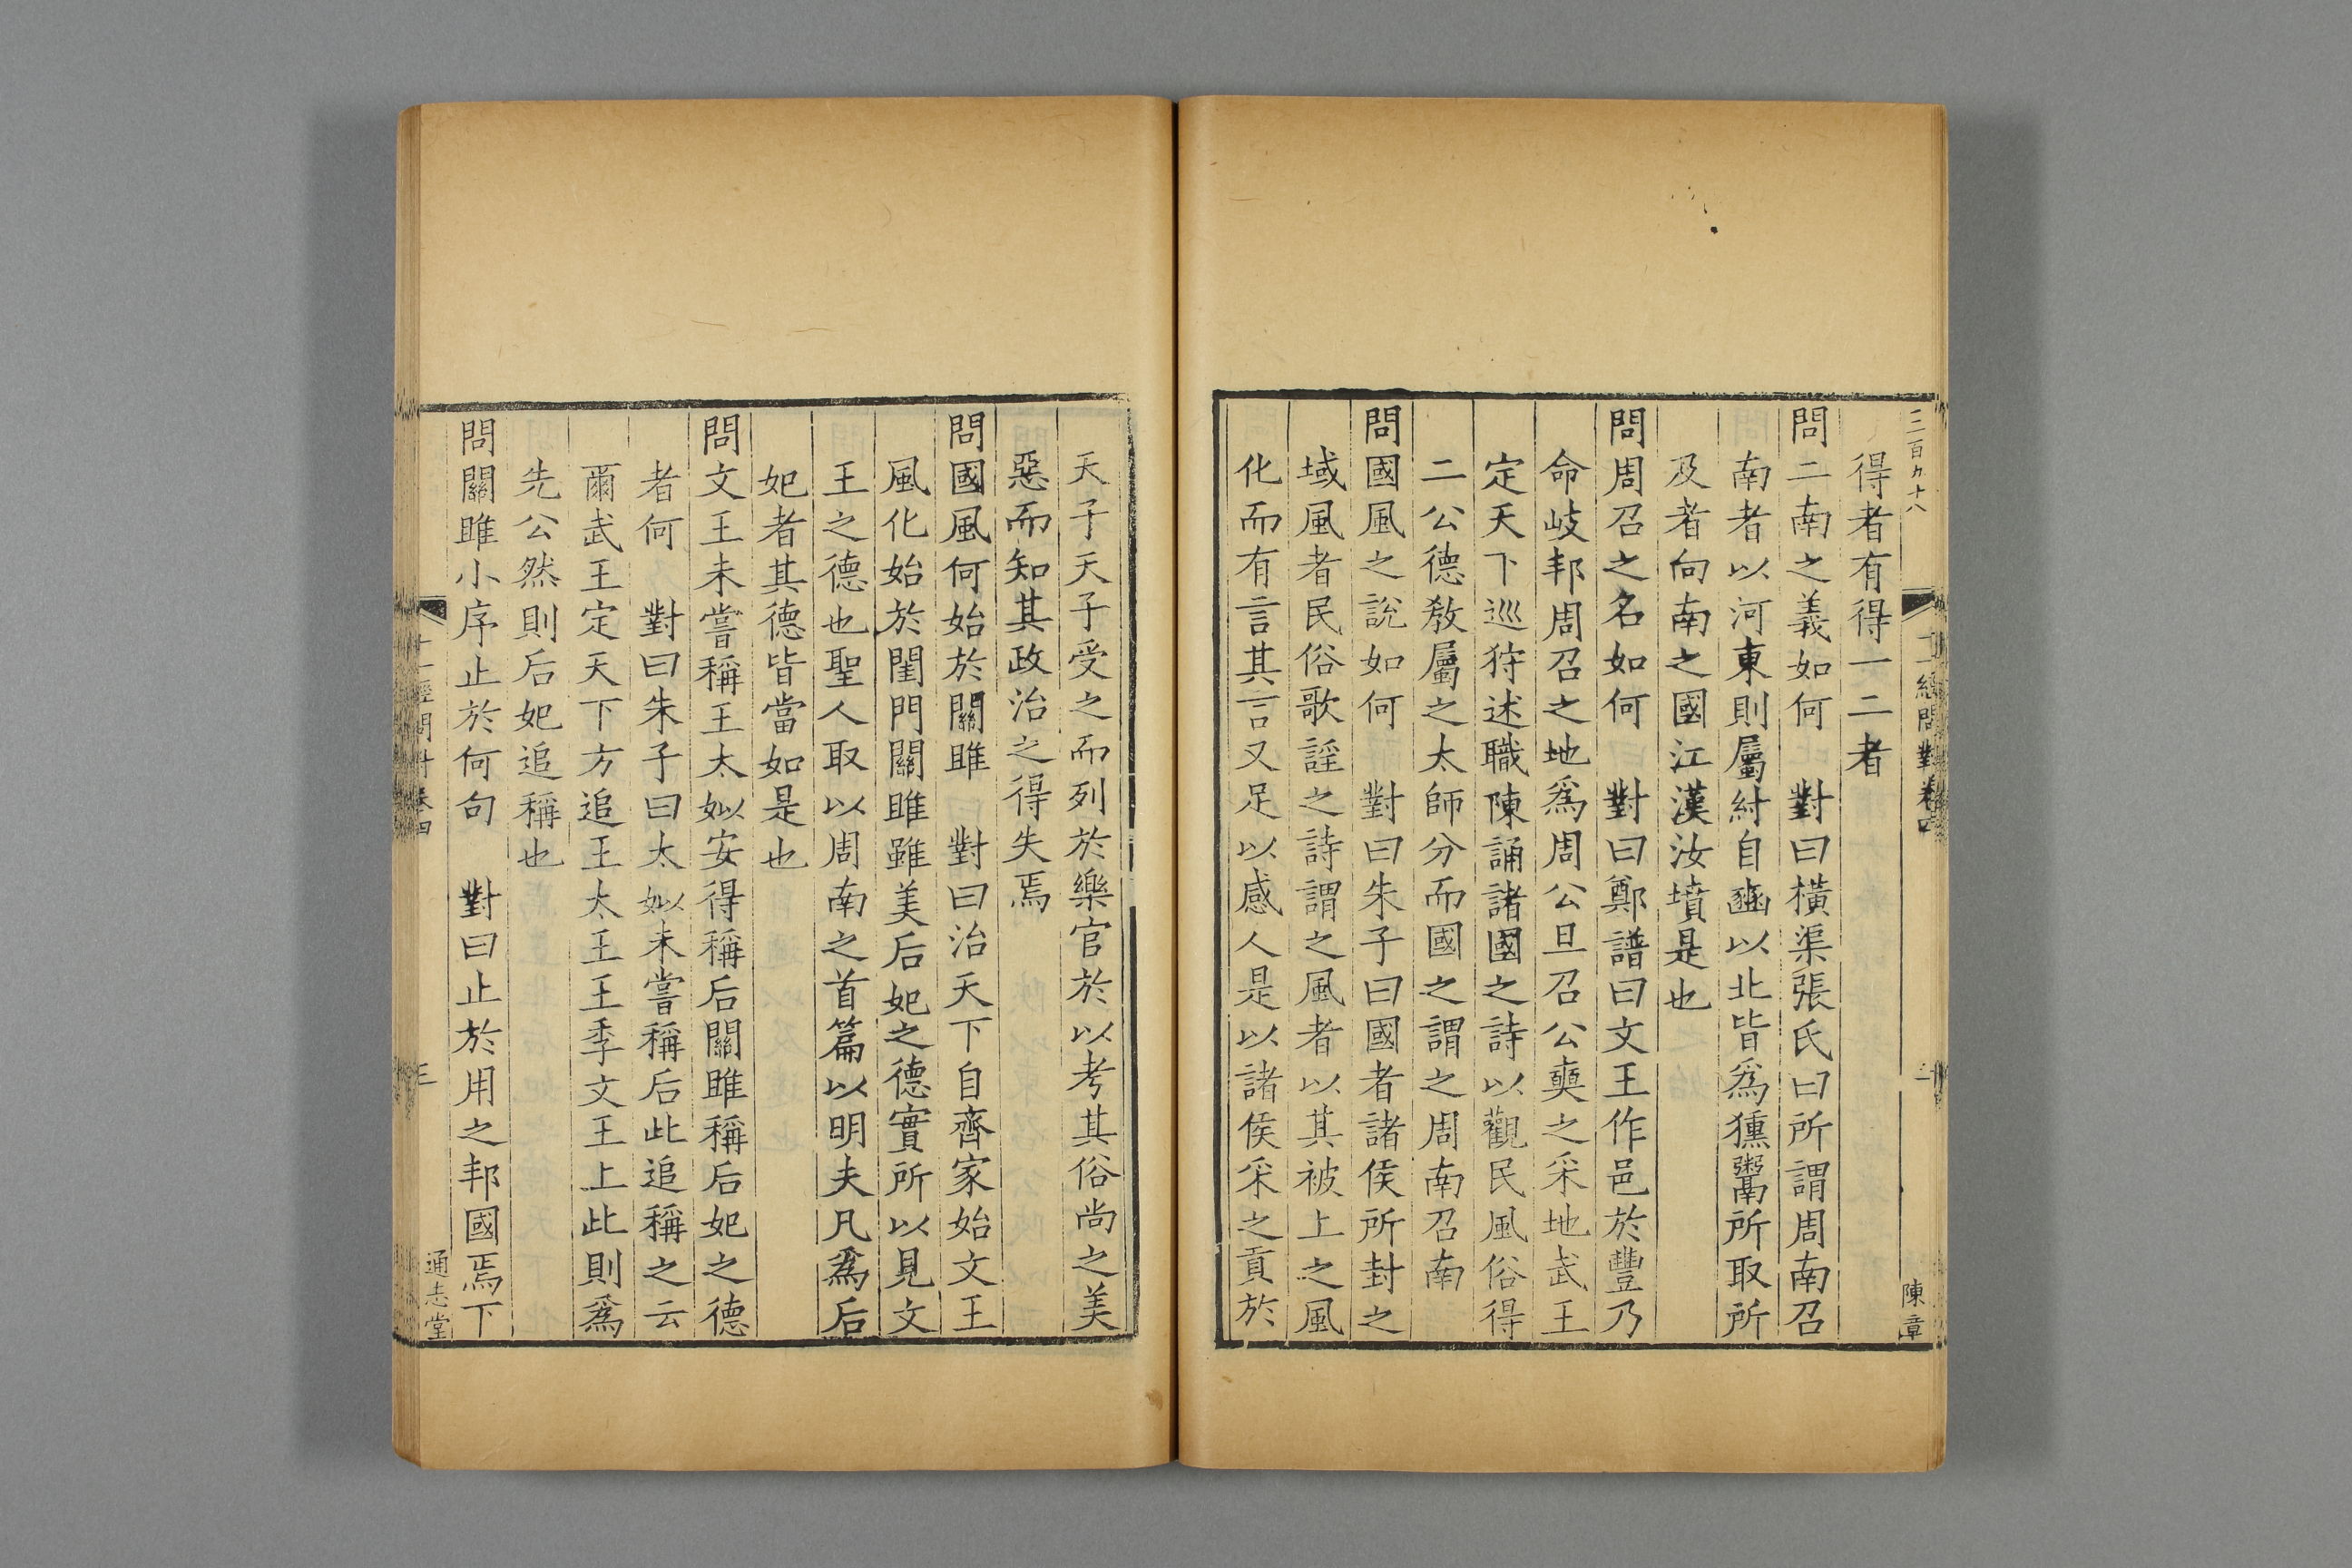 三百九十八
十一經問對卷四
二
陳章
得者有得一二者
問二南之義如何 對曰橫渠張氏曰所謂周南召
南者以河東則屬紂自豳以北皆爲獯鬻所取所
及者向南之國江漢汝墳是也
問周召之名如何 對曰鄭譜曰文王作邑於豐乃
命岐邦周召之地爲周公旦召公奭之采地武王
定天下巡狩述職陳誦諸國之詩以觀民風俗得
二公德教屬之太師分而國之謂之周南召南
問國風之說如何 對曰朱子曰國者諸侯所封之
域風者民俗歌謡之詩謂之風者以其被上之風
化而有言其言又足以感人是以諸侯采之貢於
天子天子受之而列於樂官於以考其俗尚之美
惡而知其政治之得失焉
問國風何始於關雎 對曰治天下自齊家始文王
風化始於閨門關雎雖美后妃之德實所以見文
王之德也聖人取以周南之首篇以明夫凡爲后
妃者其德皆當如是也
問文王未嘗稱王太姒安得稱后關雎稱后妃之德
者何 對曰朱子曰太姒未嘗稱后此追稱之云
爾武王定天下方追王太王王季文王上此則爲
先公然則后妃追稱也
問關雎小序止於何句 對曰止於用之邦國焉下
十一經問對卷四
三
通志堂